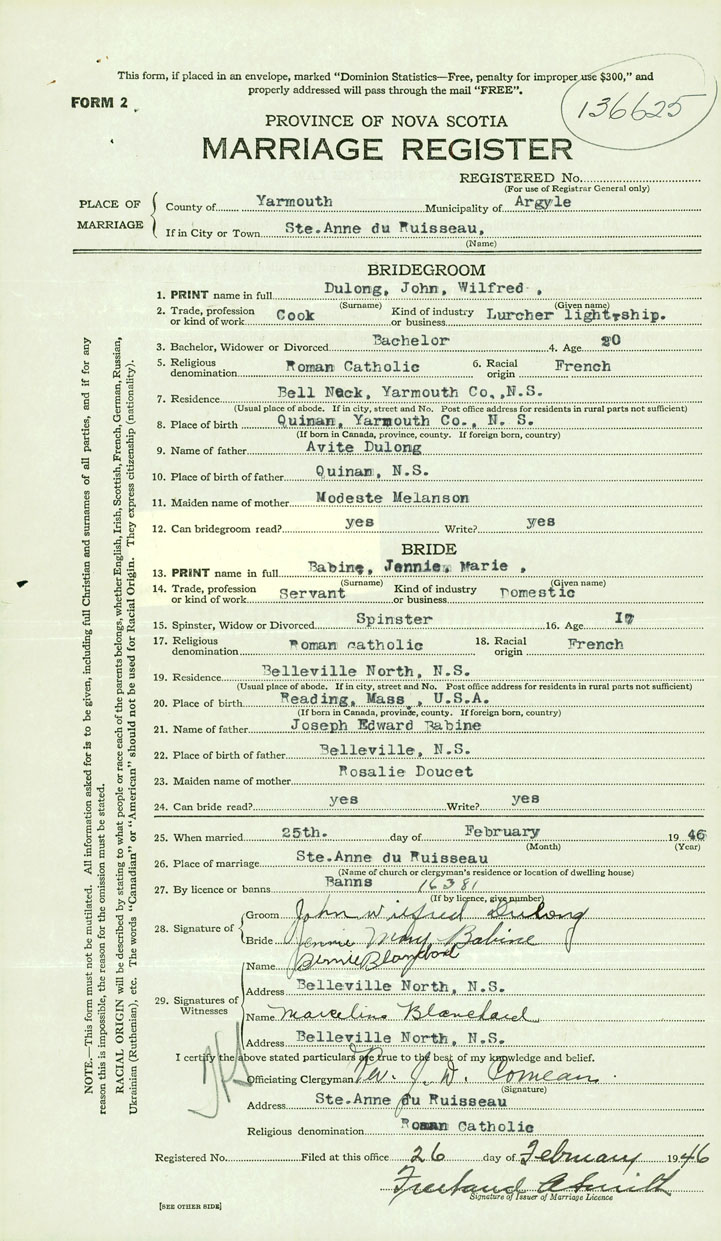 This form, if placed in an envelope, marked "Dominion Statistics—Free, penalty for improper use $300," and
properly addressed will pass through the mail "FREE".
FORM 2
136625
PROVINCE OF NOVA SCOTIA
MARRIAGE REGISTER
REGISTERED No.
(For use of Registrar General only)
PLACE OF MARRIAGE
County of Yarmouth Municipality of Argyle
If in City or Town Ste.Anne du Ruisseau,
(Name)
BRIDEGROOM
1. PRINT name in full Dulong, John, Wilfred ,
(Surname) (Given name)
2. Trade, profession or kind of work Cook Kind of industry or business Lurcher lightship.
3. Bachelor, Widower or Divorced Bachelor 4. Age 20
5. Religious denomination Roman Catholic 6. Racial origin French
7. Residence Bell Neck, Yarmouth Co.,N.S.
(Usual place of abode. If in city, street and No. Post office address for residents in rural parts not sufficient)
8. Place of birth Quinan, Yarmouth Co., N. S.
(If born in Canada, province, county. If foreign born, country)
9. Name of father Avite Dulong
10. Place of birth of father Quinan, N.S.
11. Maiden name of mother Modeste Melanson
12. Can bridegroom read? yes Write? yes
BRIDE
13. PRINT name in full Babine, Jennie, Marie ,
(Surname) (Given name)
14. Trade, profession or kind of work Servant Kind of industry or business Domestic
15. Spinster, Widow or Divorced Spinster 16. Age 17
17. Religious denomination Roman catholic 18. Racial origin French
19. Residence Belleville North, N.S.
(Usual place of abode. If in city, street and No. Post office address for residents in rural parts not sufficient)
20. Place of birth Reading, Mass., U.S.A.
(If born in Canada, province, county. If foreign born, country)
21. Name of father Joseph Edward Babine
22. Place of birth of father Belleville, N.S.
23. Maiden name of mother Rosalie Doucet
24. Can bride read? yes Write? yes
25. When married 25th. day of February 19 46
(Month) (Year)
26. Place of marriage Ste.Anne du Ruisseau
(Name of church or clergyman's residence or location of dwelling house)
27. By licence or banns Banns 16381
(If by licence, give number)
28. Signature of
Groom John Wilfred Dulong
Bride Jennie Mary Babine
29. Signatures of Witnesses
Name Bernie Blanchard
Address Belleville North, N.S.
Name Marceline Blanchard
Address Belleville North, N.S.
I certify the above stated particulars are true to the best of my knowledge and belief.
Officiating Clergyman Rev. J. D. Comeau.
(Signature)
Address Ste.Anne du Ruisseau
Religious denomination Roman Catholic
Registered No. Filed at this office 26 day of February 1946
Freeland A Smith
Signature of Issuer of Marriage Licence
[SEE OTHER SIDE]
NOTE.—This form must not be mutilated. All information asked for is to be given, including full Christian and surnames of all parties, and if for any
reason this is impossible, the reason for the omission must be stated.
RACIAL ORIGIN will be described by stating to what people or race each of the parents belongs, whether English, Irish, Scottish, French, German, Russian,
Ukrainian (Ruthenian), etc. The words "Canadian" or "American" should not be used for Racial Origin. They express citizenship (nationality).